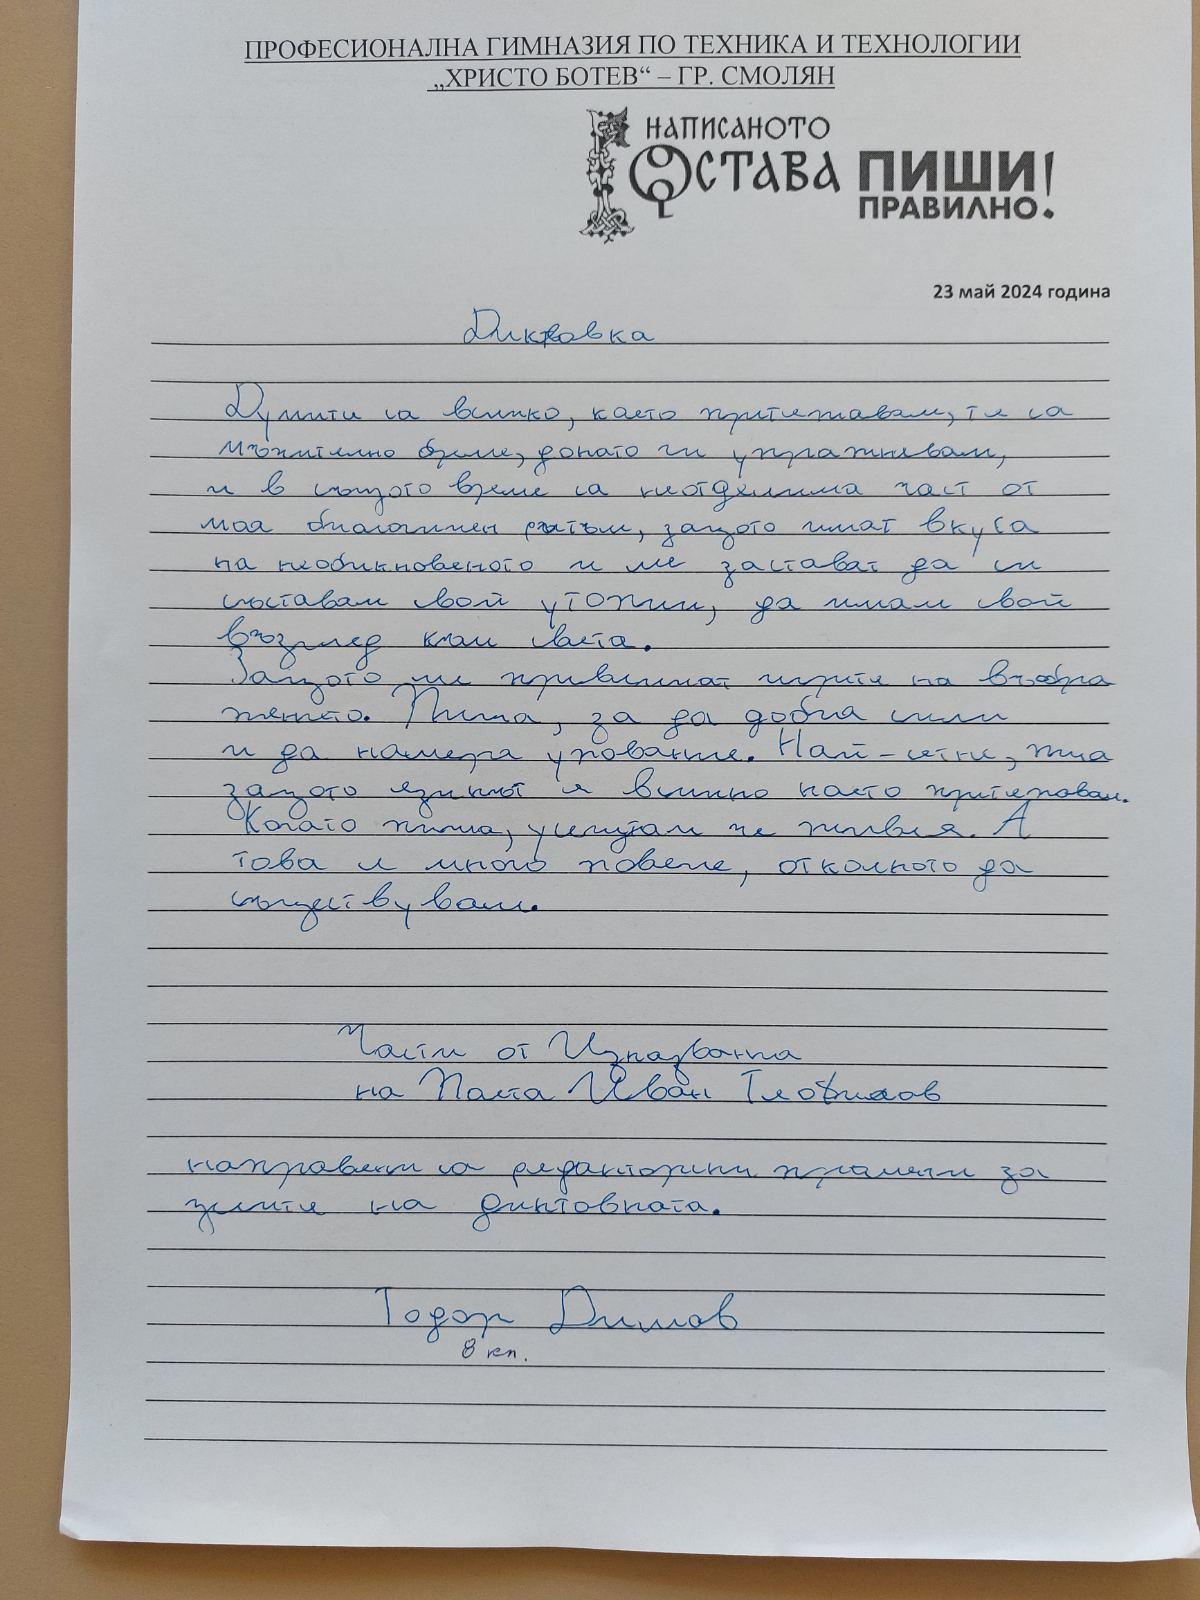 ПРОФЕСИОНАЛНА ГИМНАЗИЯ ПО ТЕХНИКА И ТЕХНОЛОГИИ
„ХРИСТО БОТЕВ“ – ГР. СМОЛЯН
НАПИСАНОТО
ОСТАВА
ПИШИ
ПРАВИЛНО!
23 май 2024 година
Диктовка
Думите са всичко, което притежавам, те са
мъчително бреме, докато ги упражнявам,
и в същото време са неотделима част от
моя биологичен ритъм, защото имат вкуса
на необикновеното и ме заставят да си
съставям свои утопии, да имам свой
възглед към света.
Защото ме привличат игрите на въобра
жението. Пиша, за да добия сили
и да намеря упование. Най-сетне, пиша
защото езикът е всичко което притежавам.
Когато пиша, усещам че живея. А
това е много повече, отколкото да
съществувам.
Части от Изказвания
на Поета Иван Теофилов
направени са редакторски промени за
целите на диктовката.
Тодор Димов
8 кл.